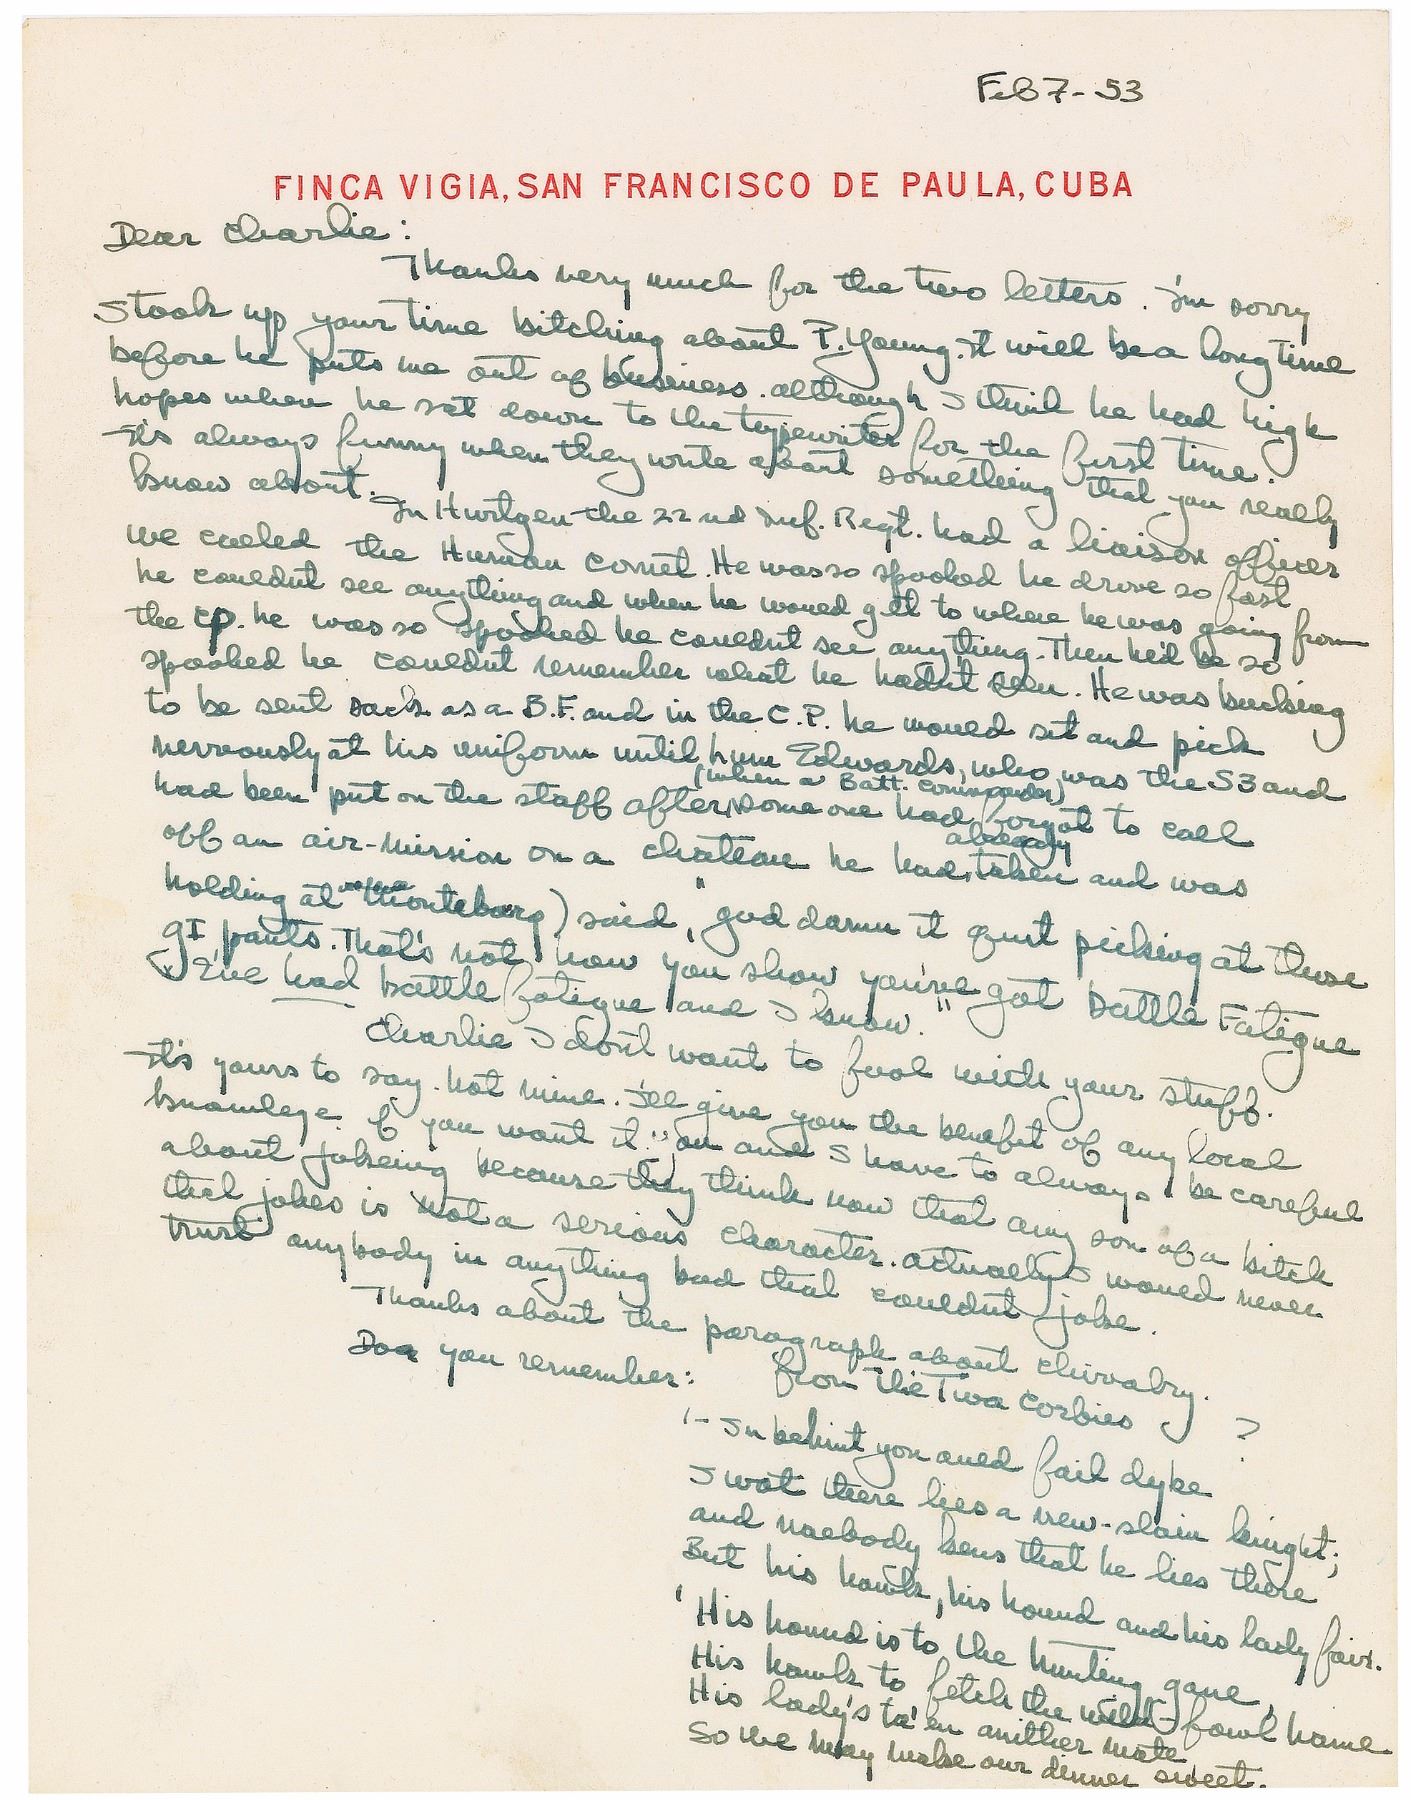 Feb 7 - 53
FINCA VIGIA, SAN FRANCISCO DE PAULA, CUBA
Dear Charlie:
Thanks very much for the two letters. I'm sorry
I took up your time bitching about P. Young. It will be a long time
before he puts me out of business. although I think he had high
hopes when he sat down to the typewriter for the first time.
It's always funny when they write about something that you really
know about.
In Hurtgen the 22nd Inf. Regt. had a liaison officer
we called the Human Comet. He was so spooked he drove so fast
he couldnt see anything and when he would get to where he was going from
the CP. he was so spooked he couldnt see anything. Then he'd be so
spooked he couldnt remember what he hadn't seen. He was bucking
to be sent back as a B.F. and in the C.P. he would sit and pick
nervously at his uniform until Edwards, who was the S3 and
(when a Batt. Commander)
had been put on the staff after someone had forgot to call
already
off an air-mission on a chateau he had taken and was
holding at ) said, "god damn it quit picking at those
GI pants. That's not how you show you've got Battle Fatigue
I've had battle fatigue and I know."
Charlie I dont want to fool with your stuff.
It's yours to say. not mine. I'll give you the benefit of any local
knowlege if you want it. and I have to always be careful
about jokeing because they think now that any son of a bitch
that jokes is not a serious character. actually I would never
trust anybody in anything bad that couldnt joke.
Thanks about the paragraph about chivalry.
Do you remember: from The Twa Corbies ?
'- In behint yon auld fail dyke
I wot there lies a new-slain knight;
and naebody kens that he lies there
But his hawk, his hound and his lady fair.
'His hound is to the hunting gane,
His hawk to fetch the wild-fowl hame
His lady's ta'en anither mate
So we may make our dinner sweet.